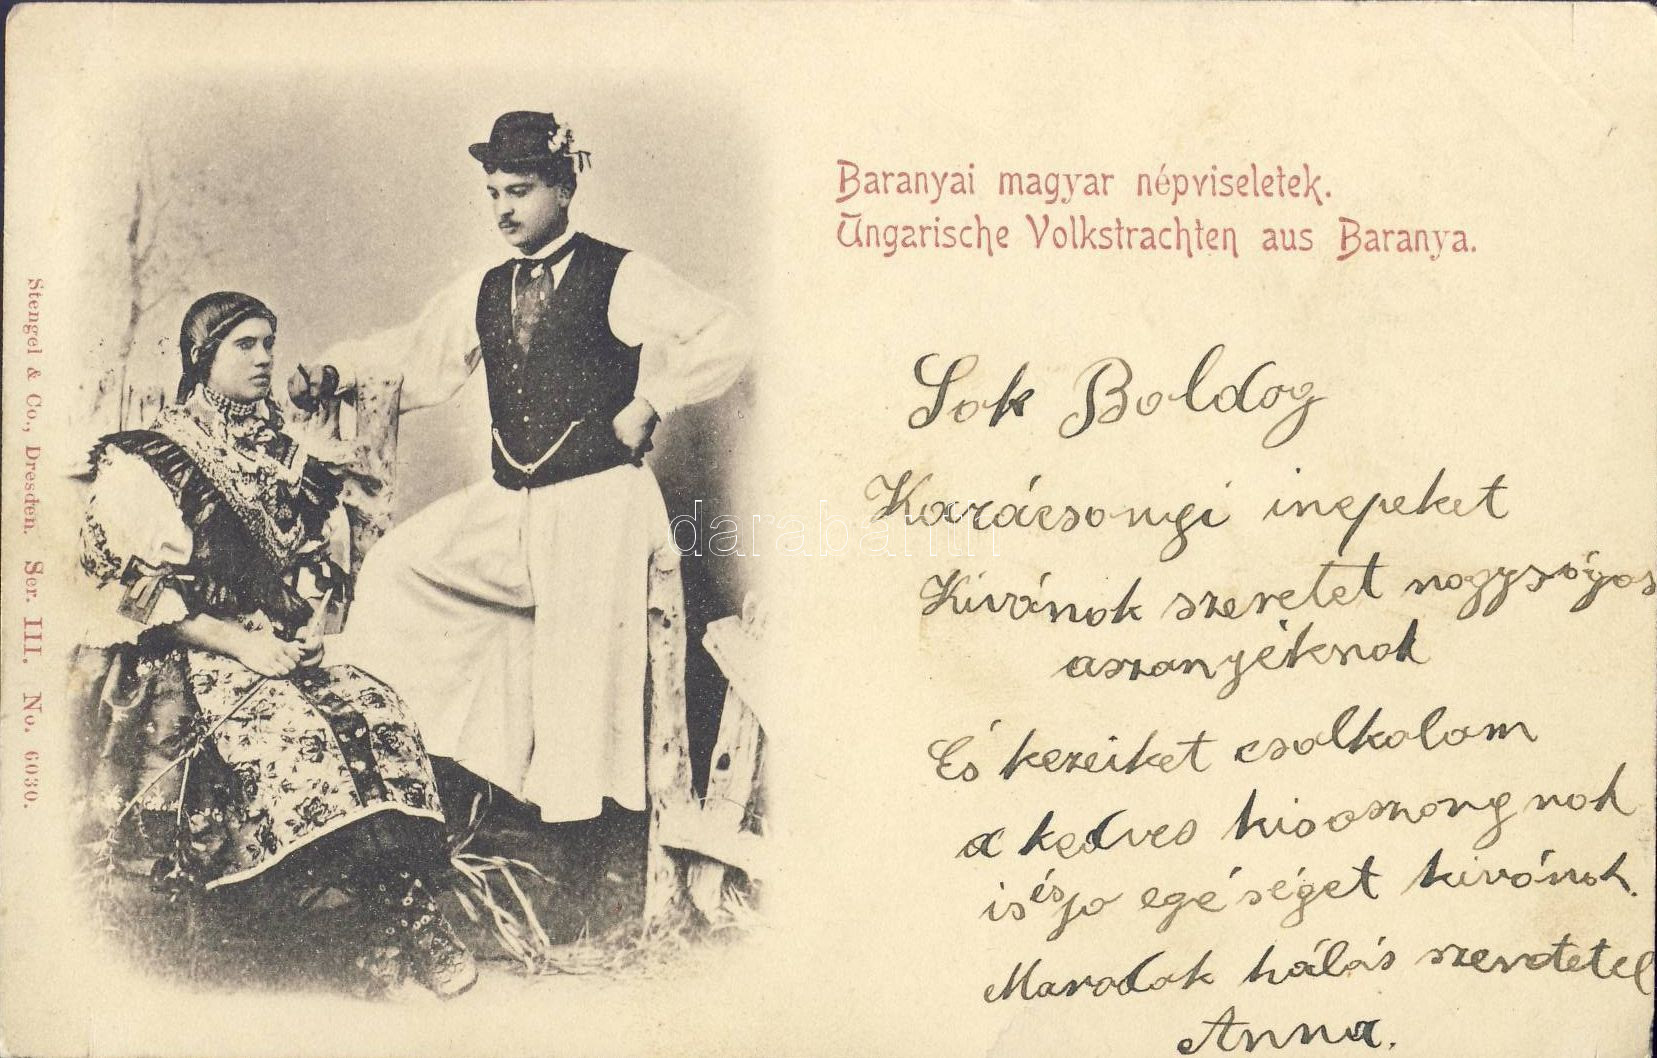 Baranyai magyar népviseletek.
Ungarische Volkstrachten aus Baranya.
Stengel & Co., Dresden. Ser. III. No. 6030.
darabanth
Sok Boldog
Karácsonyi inepeket
Kivánok szeretet nagyságos
aszanyéknak
És kezeiket csalkolom
a kedves kisaszongnak
is és jo egéséget kivánok.
Maradok hálás szeretetel
Anna.